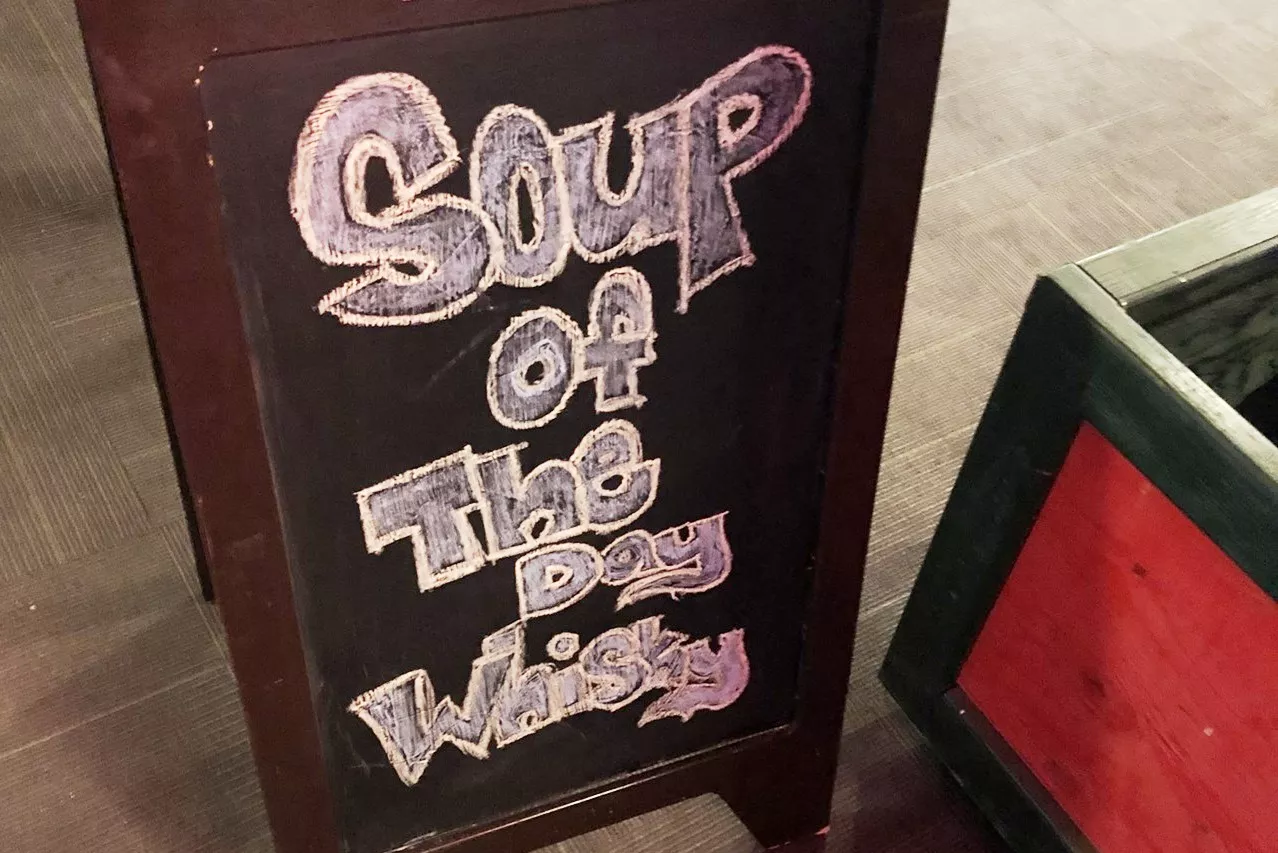 Soup
Of
The
Day
Whisky